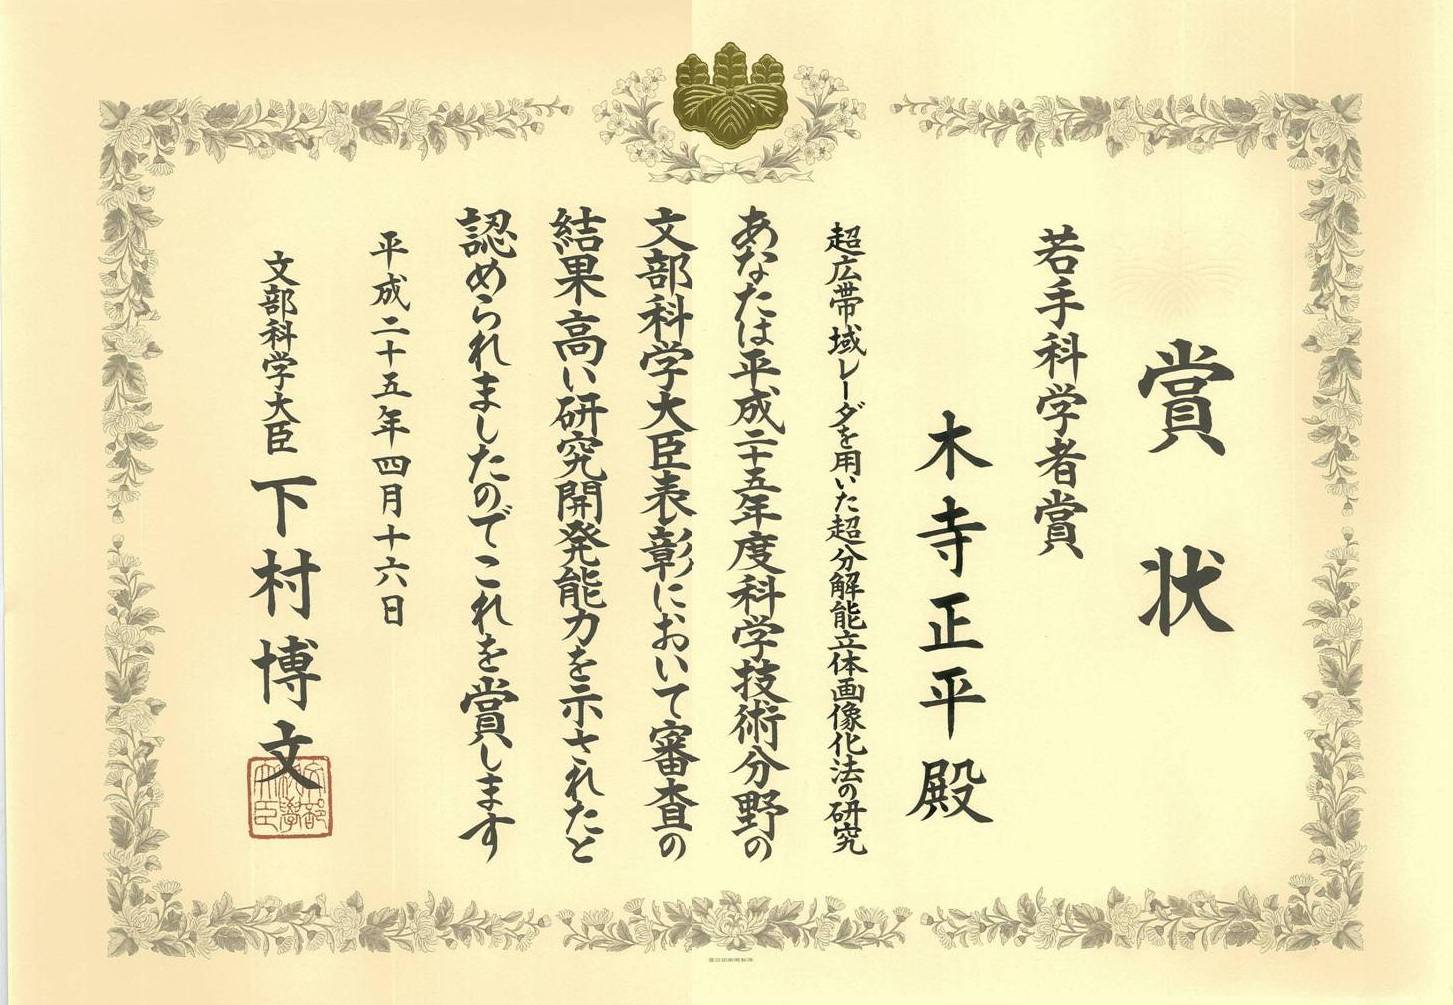 賞状
若手科学者賞
木寺正平殿
超広帯域レーダを用いた超分解能立体画像化法の研究
あなたは平成二十五年度科学技術分野の
文部科学大臣表彰において審査の
結果高い研究開発能力を示されたと
認められましたのでこれを賞します
平成二十五年四月十六日
文部科学大臣 下村博文